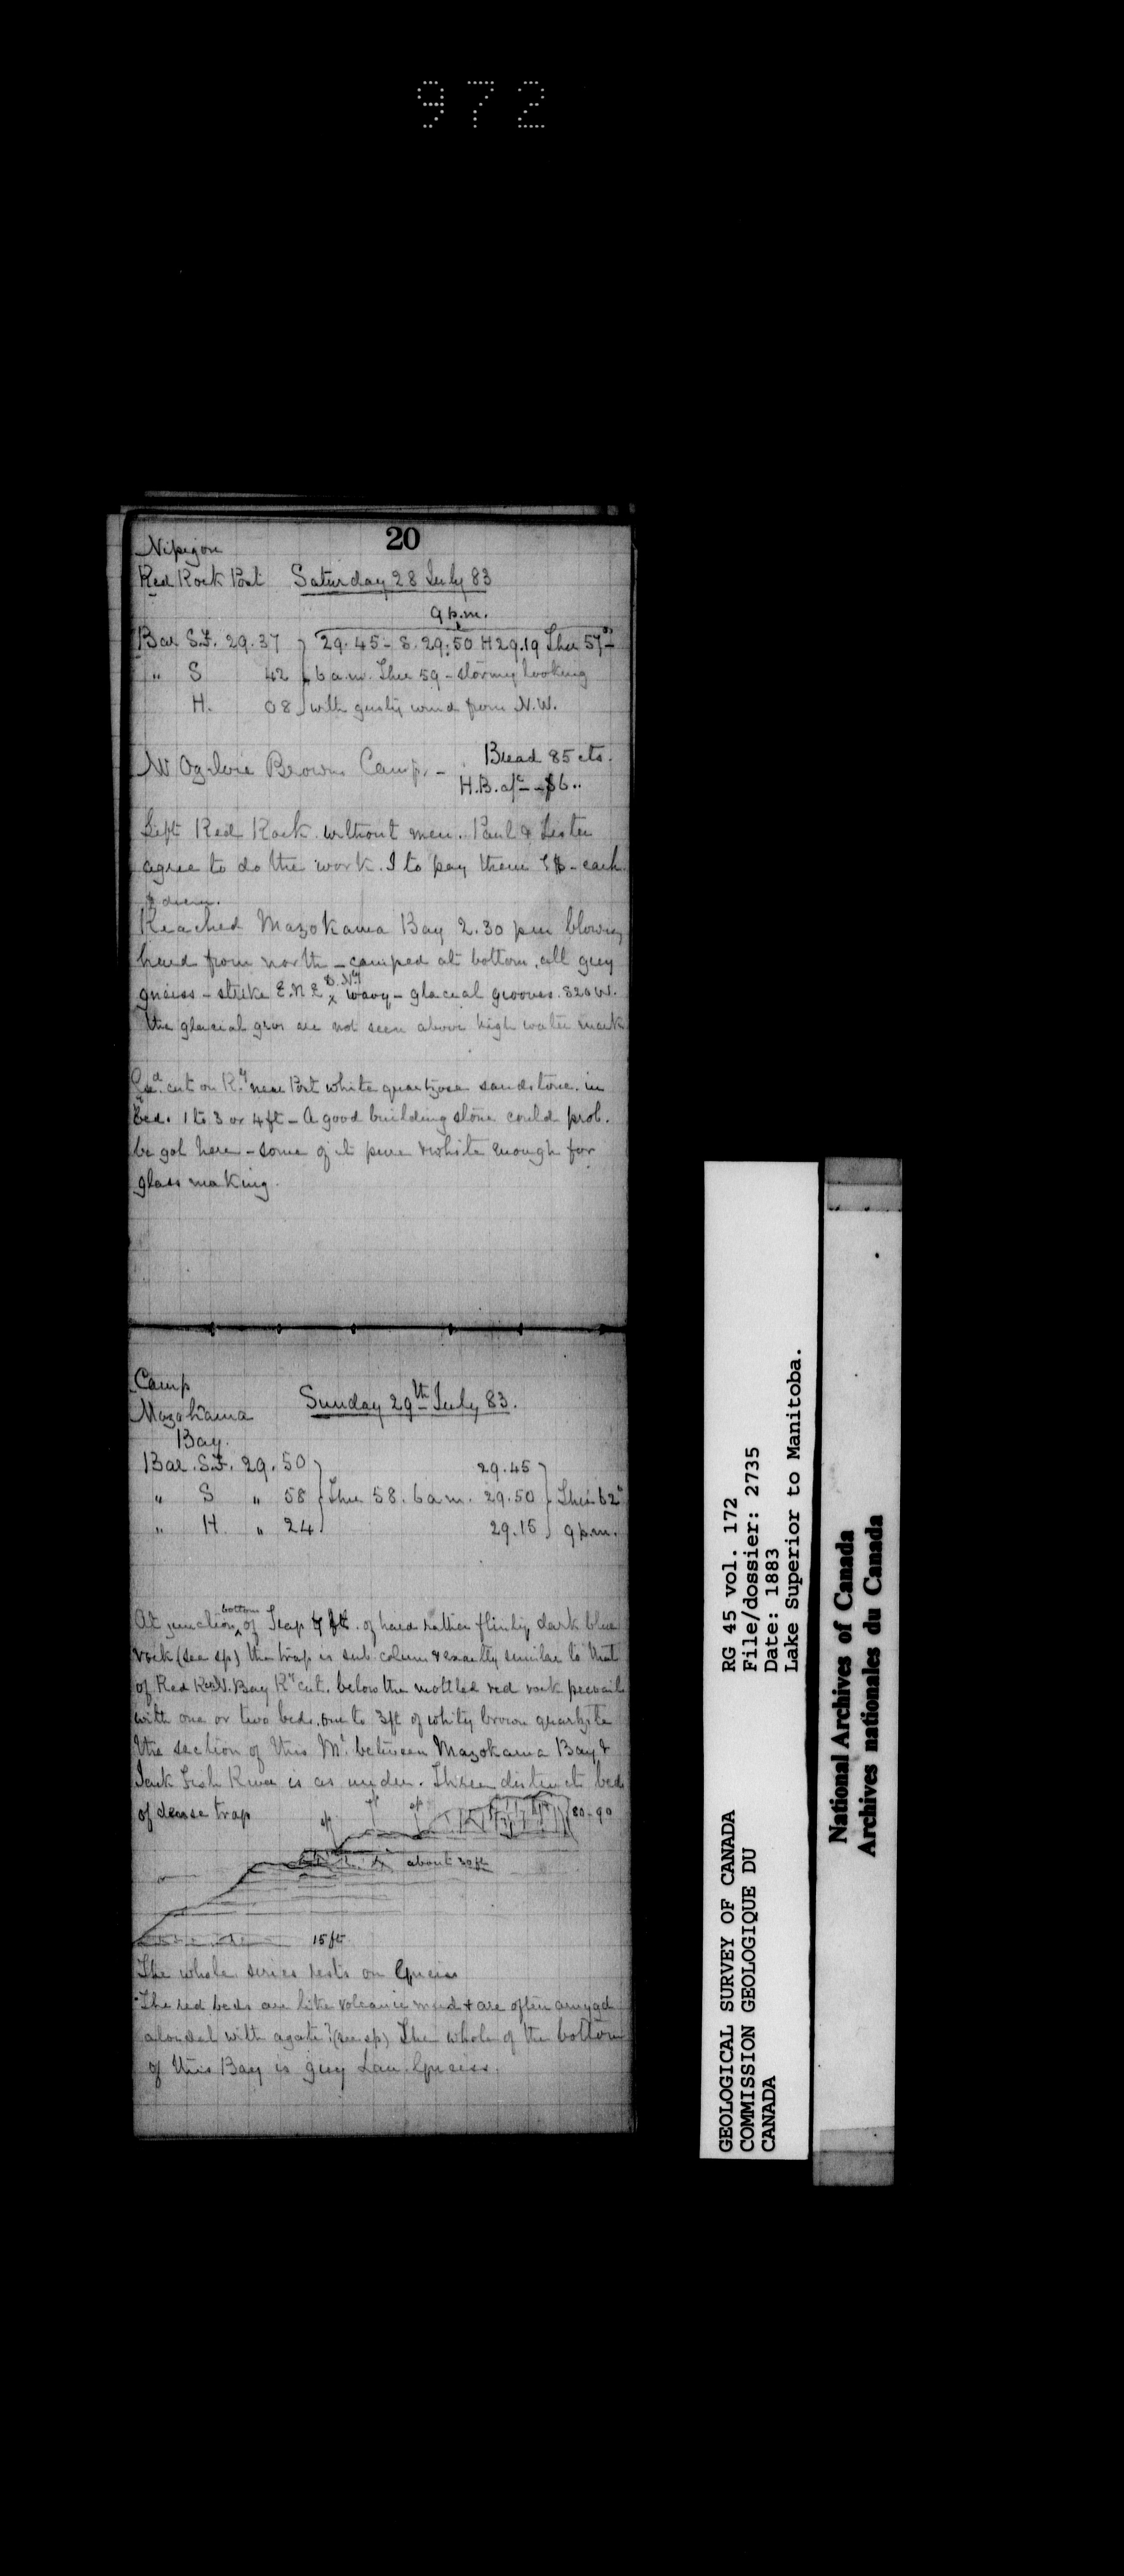 972
20
Nipigon
Red Rock Post Saturday 28 July 83
9 p.m.
Bar S.F. 29.37 29.45 - S. 29.50 H 29.19 Ther 57°
" S 42 6 a.m. Ther 59 - stormy looking
H. 08 with gusty wind from N.W.
W Ogilvie Browns Camp. - Bread 85 cts.
H.B. a/c - $6..
Left Red Rock without men. Paul & Lester
agree to do the work. I to pay them $ - each
diem.
Reached Mazokama Bay 2.30 pm blowing
hard from north - camped at bottom, all grey
gneiss - strike E.N.E wavy - glacial grooves. S20W.
The glacial grvs are not seen above high water mark
cut on Ry near Post white quartzose sandstone. in
Beds 1 to 3 or 4 ft - A good building stone could prob.
be got here - some of it pure white enough for
glass making.
Camp
Mazokama
Bay.
Sunday 29th July 83.
Bar. S.F. 29.50 29.45
" S " 58 Ther 58. 6 a.m. 29.50 Ther 62°
" H. " 24 29.15 9 p.m.
At junction bottom of Trap ft. of hard rather flinty dark blue
rock (see sp) the trap is sub column & exactly similar to that
of Red Bay Ry cut. below the mottled red rock prevails
with one or two beds. one to 3ft of whity brown quartzite
The section of this Mt. between Mazokama Bay &
Jack Fish River is as under. Three distinct beds
of dense trap
80-90
about 30 ft
15 ft
The whole series rests on Gneiss
The red beds are like volcanic mud & are often amygd
aloidal with agate? (see sp) The whole of the bottom
of this Bay is grey Lau. Gneiss.
GEOLOGICAL SURVEY OF CANADA
COMMISSION GEOLOGIQUE DU
CANADA
RG 45 vol. 172
File/dossier: 2735
Date: 1883
Lake Superior to Manitoba.
National Archives of Canada
Archives nationales du Canada